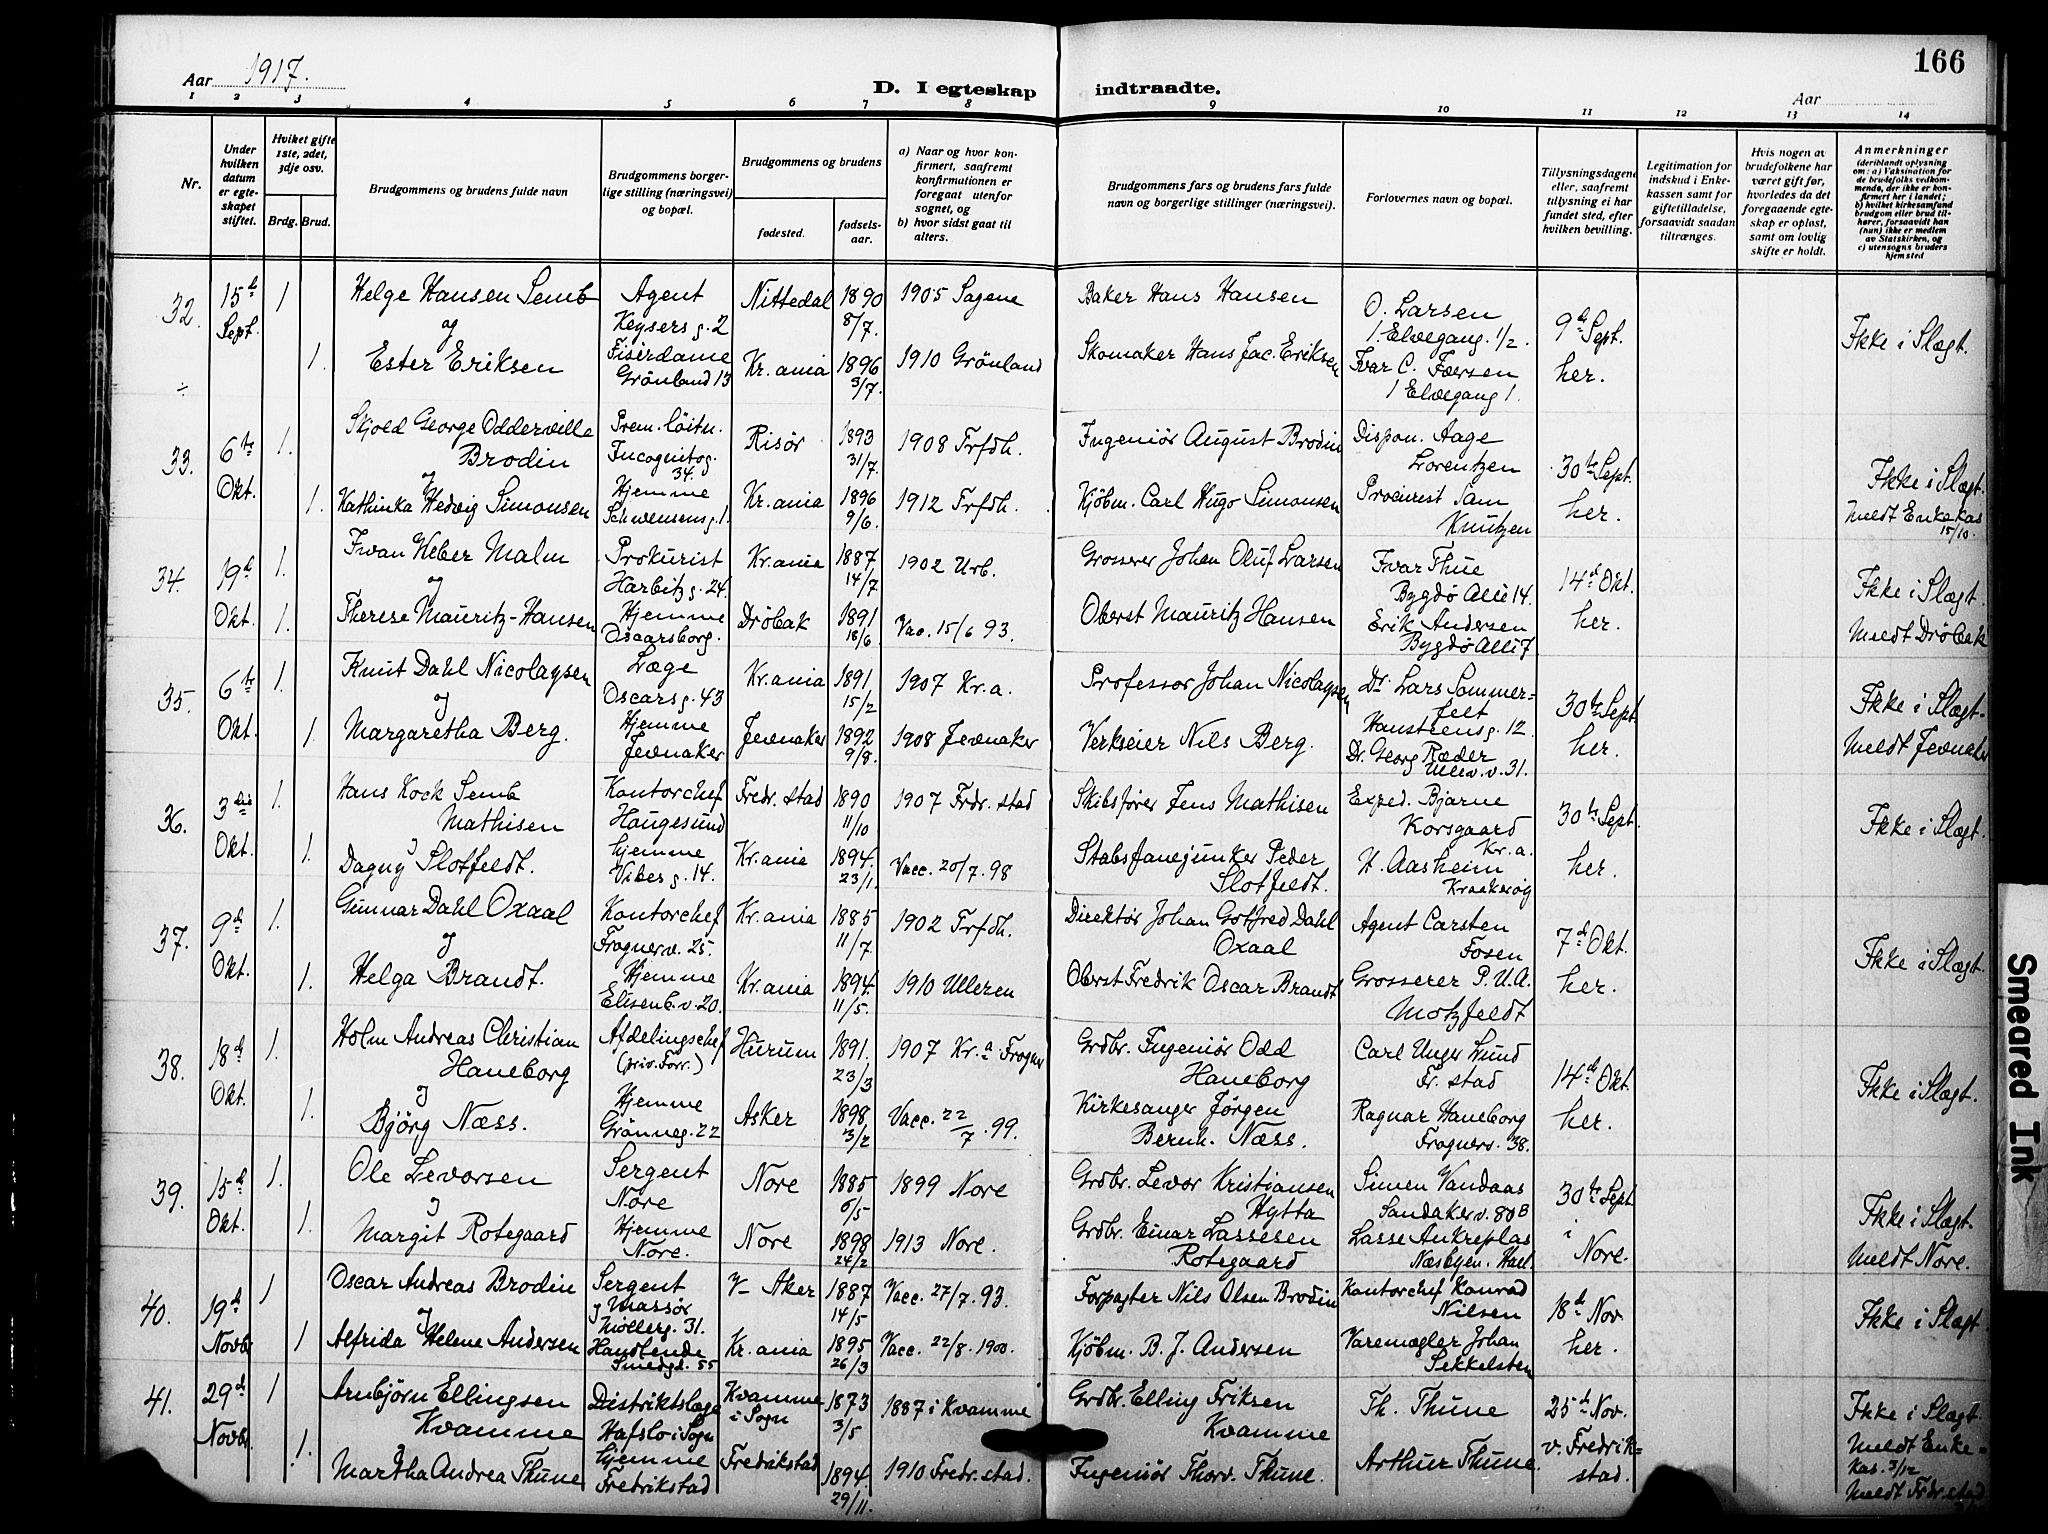 166
Aar 1917.
D. I egteskap indtraadte.
Aar
1 2 3 4 5 6 7 8 9 10 11 12 13 14
Nr.
Under hvilken datum er egteskapet stiftet.
Hvilket gifte 1ste, 2det, 3dje osv.
Brdg. Brud.
Brudgommens og brudens fulde navn
Brudgommens borgerlige stilling (næringsvei) og bopæl.
Brudgommens og brudens
fødested.
fødselsaar.
a) Naar og hvor konfirmert, saafremt konfirmationen er foregaat utenfor sognet, og
b) hvor sidst gaat til alters.
Brudgommens fars og brudens fars fulde navn og borgerlige stillinger (næringsvei).
Forlovernes navn og bopæl.
Tillysningsdagene eller, saafremt tillysning ei har fundet sted, efter hvilken bevilling.
Legitimation for indskud i Enkekassen samt for giftetilladelse, forsaavidt saadan tiltrænges.
Hvis nogen av brudefolkene har været gift før, hvorledes da det foregaaende egteskap er opløst, samt om lovlig skifte er holdt.
Anmerkninger
(deriblandt oplysning om: a) Vaksination for de brudefolks vedkommende, der ikke er konfirmert her i landet;
b) hvilket kirkesamfund brudgom eller brud tilhører, forsaavidt han (hun) ikke er medlem av Statskirken, og
c) utensogns bruders hjemsted
32. 15d Sept. 1 Helge Hansen Semb Agent Keysers g. 2 Nittedal 1890 8/7. 1905 Sagene Baker Hans Hansen O. Larsen 1. Elvegang. 1/2. 9d Sept. Ikke i Slægt.
og
1. Ester Eriksen Grönland 13 Kr.ania 1896 3/7. 1910 Grönland Skomaker Hans Jac. Eriksen Ivar C. 1 Elvegang 1. her.
33. 6te Okt. 1. George Brodin Prem. löitn. Incognitog. 34. Risör 1893 31/7. 1908 Trfdh. Ingeniör August Brodin Dispon. Aage Lorentzen 30te Sept. Ikke i Slægt.
og
1. Kathinka Hedvig Simonsen Hjemme Schwensensg. 1. Kr.ania 1896 9/6. 1912 Trfdh. Kjöbm. Carl Hugo Simonsen Sam Knutzen her. Meldt Enkekas 15/10.
34. 19d Okt. 1. Ivan Weber Malm Prokurist Harbitzg. 24. Kr.ania 1887 14/7 1902 Urb. Grosserer Johan Oluf Larsen Ivar Thue Bygdö Allé 14. 14d Okt. Ikke i Slægt.
og
1. Therese Mauritz-Hansen Hjemme Oscarsborg. Dröbak 1891 18/6 Vac. 15/6 93. Oberst Mauritz Hansen Erik Andersen Bygdö Allé 7 her. Meldt Dröbak
35. 6te Okt. 1. Knut Dahl Nicolaysen Læge Oscarsg. 43 Kr.ania 1891 15/2 1907 Kr.a. Professor Johan Nicolaysen Dr. Lars Sommerfelt Hansteensg. 12. 30te Sept. Ikke i Slægt.
og
1. Margaretha Berg. Hjemme Jevnaker Jevnaker 1892 9/8. 1908 Jevnaker Verkseier Nils Berg. Dr. Georg Ræder Ullev. v. 31. her. Meldt Jevnaker
36. 3die Okt. 1. Hans Kock Semb Mathisen Kontorchef Haugesund Fredr.stad 1890 11/10 1907 Frdr.stad Skibsförer Jens Mathisen Exped. Bjarne Korsgaard Kr.a. 30te Sept. Ikke i Slægt.
og
1. Dagny Slotfeldt. hjemme Vibesg. 14. Kr.ania 1894. 23/1. Vacc. 20/7. 98 Stabsfanejunker Peder Slotfeldt. H. Aasheim her.
37. 9d Okt. 1. Gunnar Dahl Oxaal Kontorchef Frognerv. 25. Kr.ania 1885 11/7. 1902 Trfdh. Direktör Johan Gotfred Dahl Oxaal Agent Carsten Fosen 7d Okt. Ikke i Slægt.
og
1. Helga Brandt. Hjemme Elisenb.v. 20. Kr.ania 1894. 11/5. 1910 Ullern Oberst Fredrik Oscar Brandt Grosserer P. U. A. Motzfeldt her.
38. 18d Okt. 1. Holm Andreas Christian Haneborg Afdelingschef (priv. Forr.) Hurum 1891. 23/3 1907 Kr.a Frogner Grdbr. Ingeniör Odd Haneborg Carl Unger Lund Fr.stad 14d Okt. Ikke i Slægt.
og
1. Björg Næss. Hjemme Grönneg. 22 Asker 1898 3/2 Vacc. 22/7. 99. Kirkesanger Jörgen Bernh. Næss. Ragnar Haneborg Frognerv. 38. her.
39. 15d Okt. 1. Ole Levorsen Sergent Nore Nore 1885 6/5 1899 Nore Grdbr. Levor Kristiansen Hytta Simen Vandaas Sandakerv. 80B 30te Sept. Ikke i Slægt.
og
1. Margit Rotegaard Hjemme Nore. Nore 1898 24/2 1913 Nore. Grdbr. Einar Lassesen Rotegaard Lasse Ankreplas Næsbyen. Hall. i Nore. Meldt Nore.
40. 19d Novb. 1 Oscar Andreas Brodin Sergent og Massör Möllerg. 31. V. Aker 1887 14/5 Vacc. 27/7. 93. Forpagter Nils Olsen Brodin Kontorchef Konrad Nilsen 18d Nov. Ikke i Slægt.
og
1 Alfrida Helene Andersen Handlende Smedgd. 55 Kr.ania 1895 26/3 Vacc. 22/8. 1900. Kjöbm. B. J. Andersen Varemægler Johan Sekkelsten her.
41. 29d Novb. 1 Arnbjörn Ellingsen Kvamme Distriktslæge Hafslo i Sogn Kvamme i Sogn 1873 3/5 1887 i Kvamme Grdbr. Elling Eriksen Kvamme Th. Thune 25d Nov. Ikke i Slægt.
og
1. Martha Andrea Thune hjemme Fredrikstad Fredrikstad 1894. 29/11. 1910 Fredr.stad. Ingeniör Thorv. Thune. Arthur Thune. v. Fredrikstad. Meldt Enkekas. 3/12 Meldt Frdr.stad
Smeared Ink